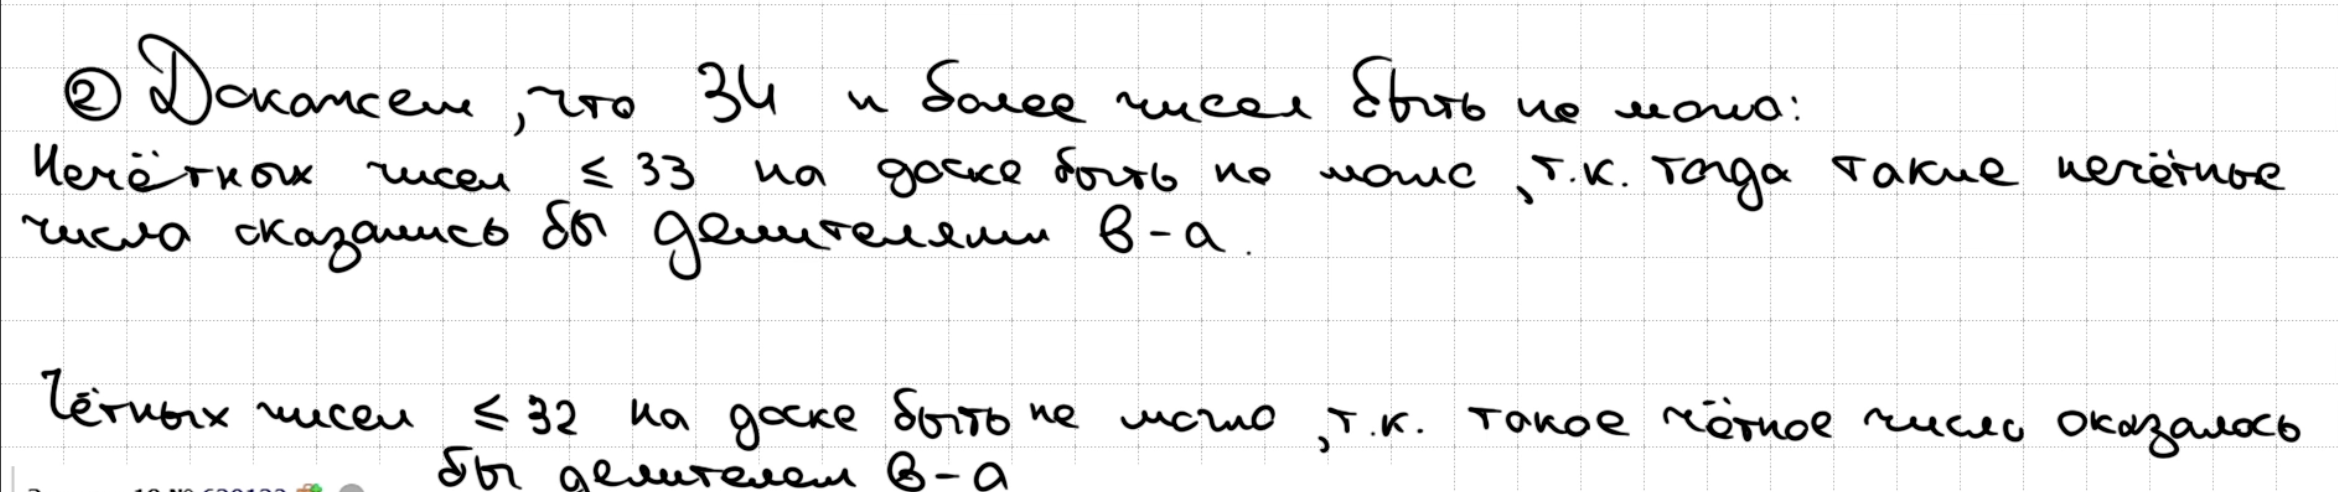 ② Докажем, что 34 и более чисел быть не могло:
Нечётных чисел ≤ 33 на доске быть не могло, т.к. тогда такие нечётные
числа оказались бы делителями в-а.
Чётных чисел ≤ 32 на доске быть не могло, т.к. такое чётное число оказалось
бы делителем в-а